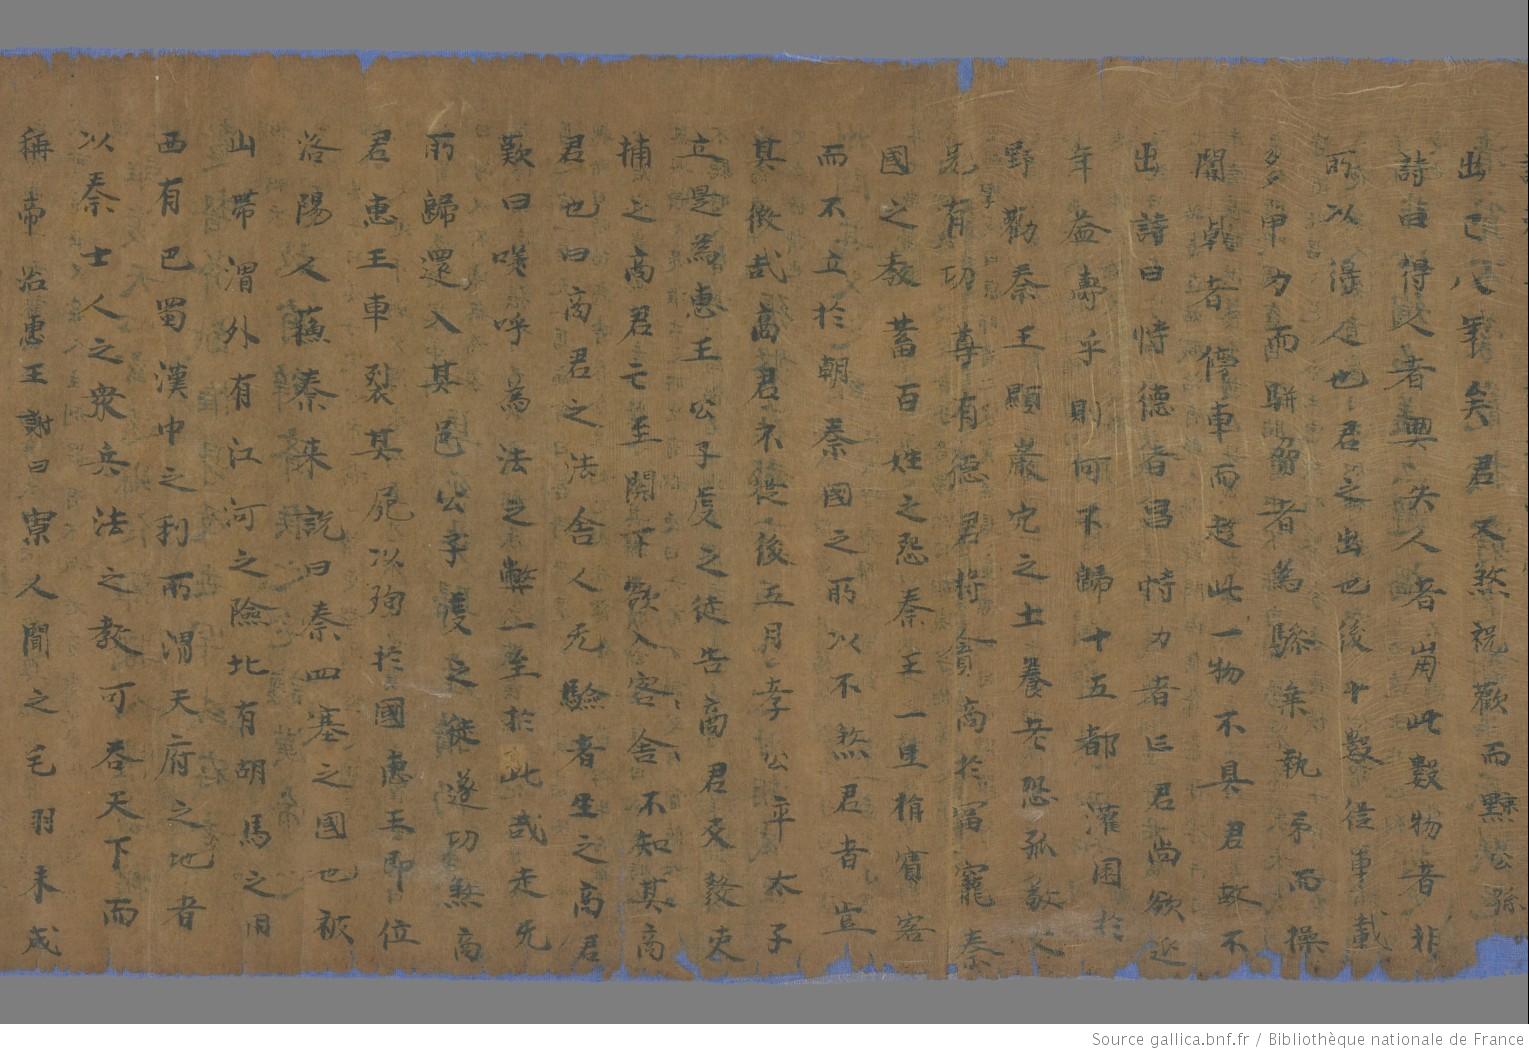 出已八年矣君又煞祝歡而黥公孫
詩曰得人者興失人者崩此數物者非
所以得人也君之出也後十數從車載
多甲力而駢脅者為驂乘執矛而操
闟戟者傍車而趍此一物不具君故不
出詩曰恃德者昌恃力者亡君尚欲延
年益壽乎則何不歸十五都灌園於
野勸秦王顯巖穴之士養老恐孤敬父
兄有功尊有德君将貪商於富寵秦
國之教蓄百姓之怨秦王一旦捐賓客
而不立於朝秦國之所以不煞君者豈
其微哉商君不從後五月孝公卒太子
立是為惠王公子虔之徒告商君反發吏
捕之商君亡至關下欲入客舍不知其商
君也曰商君之法舍人无驗者坐之商君
歎曰嗟呼為法之弊一至於此哉走无
所歸還入其邑公子虔之徒遂功煞商
君惠王車裂其屍以殉於國惠王即位
洛陽人蘇秦来說曰秦四塞之國也被
山帶渭外有江河之險北有胡馬之用
西有巴蜀漢中之利所謂天府之地者
以秦士人之衆兵法之教可吞天下而
稱帝治惠王謝曰寡人聞之毛羽未成
Source gallica.bnf.fr / Bibliothèque nationale de France